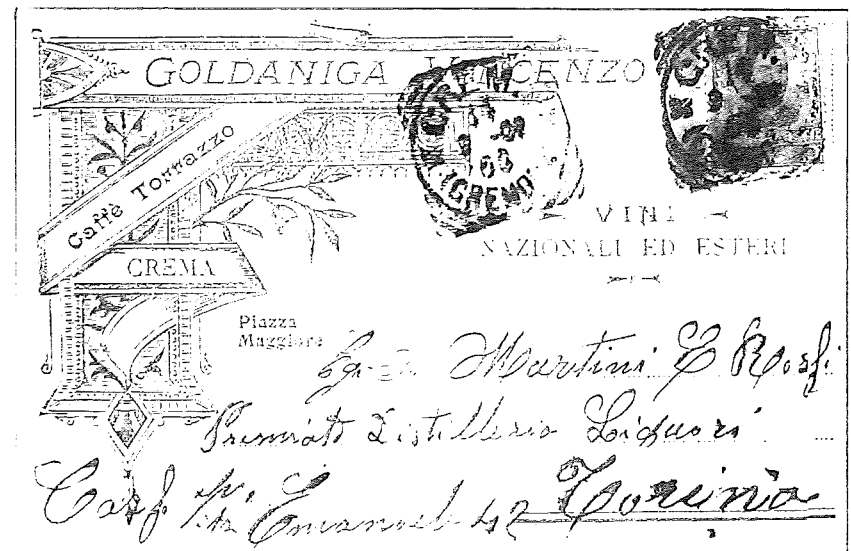 GOLDANIGA VINCENZO
Caffè Torrazzo
CREMA
Piazza
Maggiore
VINI
NAZIONALI ED ESTERI
CREMA
(CREMO
Martini E Rossi
Premiato Distilleria Liquori
Emanuel 42 Torino